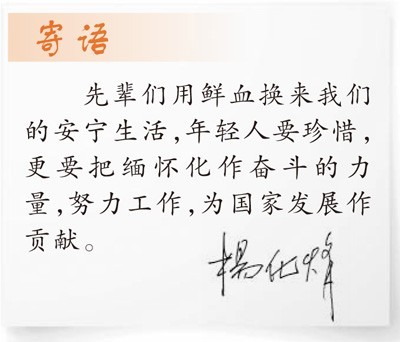 寄语
先辈们用鲜血换来我们
的安宁生活,年轻人要珍惜,
更要把缅怀化作奋斗的力
量,努力工作,为国家发展作
贡献。